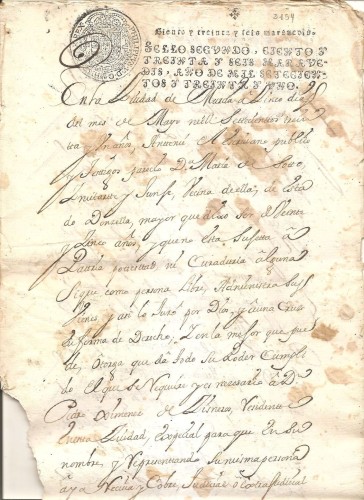 2154
Ciento y treinta y seis maravedis.
SELLO SEGVNDO, CIENTO Y
TREINTA Y SEIS MARAVE-
DIS, AÑO DE MIL SETECIEN-
TOS Y TREINTA Y VNO.
En la Ciudad de a Cinco dias
del mes de Mayo mill Setecientos
y un años, Ante mi el escriuano publico
y testigos parecio D.ª Maria de
y Vecina de ella, de estado
Donzella, mayor que dixo ser de Veinte
y Cinco años, y que no esta Sujetta a
Patria potestad, ni Curaduria alguna
Sique como persona libre, Administra sus
Vienes, y asi lo Juro por Dios, y a una Cruz
en forma de Derecho, Y en la mejor que pue
de, otorga que da todo su Poder Cumpli
do el que se Requiere y es nesesario a D.
Ximenez de Cisneros, Residente
en esta Ciudad, especial para que En su
nombre, y Representando Su misma persona
aya Reciua y Cobre, Judicial o extra Judicial